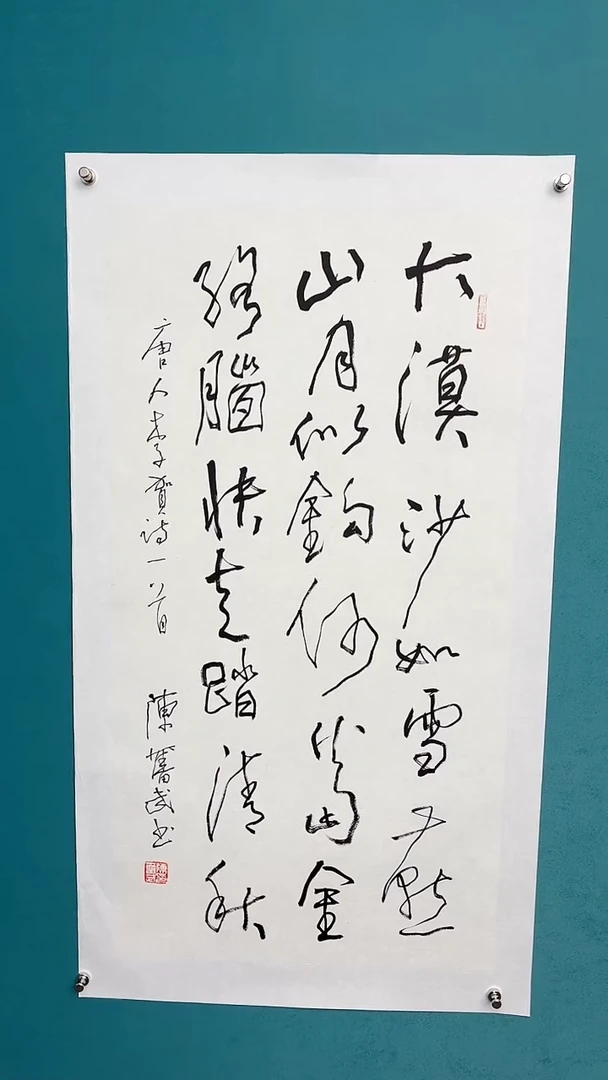 大漠沙如雪燕
山月似鈎何當金
絡腦快走踏清秋
唐人李賀詩一首
陳 武书